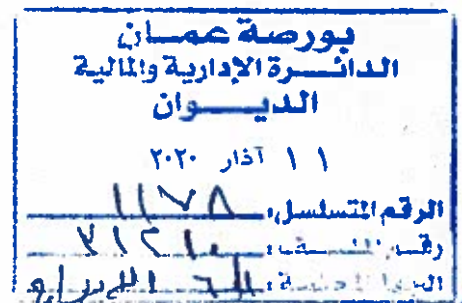 بورصة عمان
الدائرة الإدارية والمالية
الديوان
١١ آذار ٢٠٢٠
الرقم المتسلسل: ١١٧٨
رقم الملف:
الجهة المختصة: